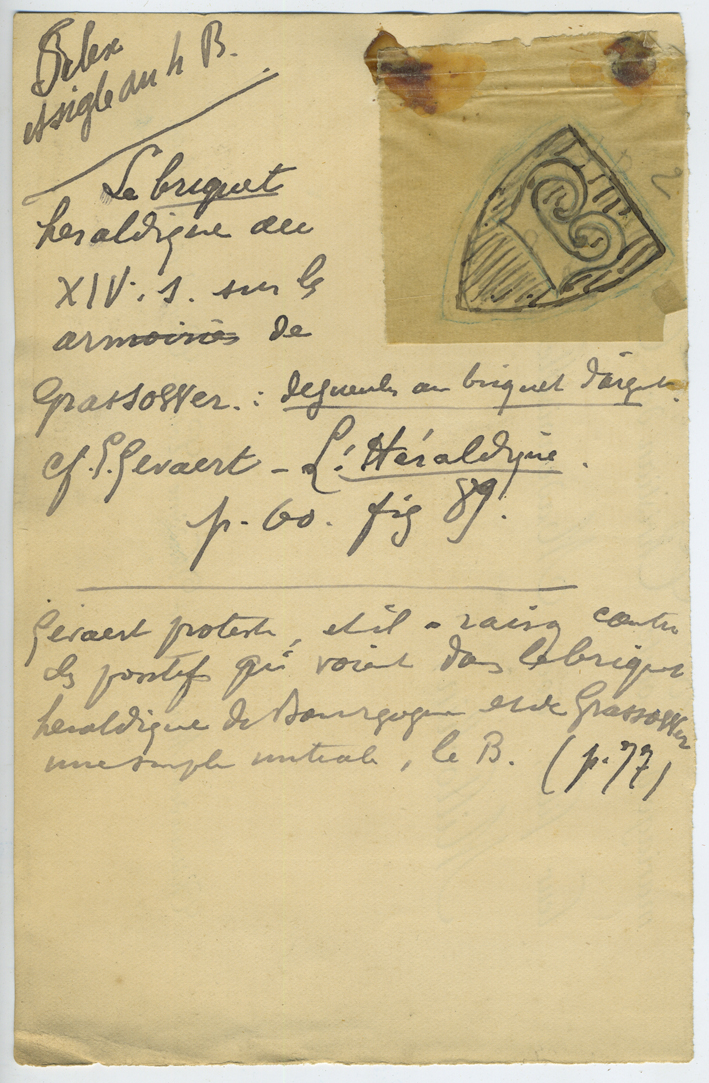 Silex
et sigle au 4 B.
Le briquet
heraldique au
XIV. s. sur les
armoiries de
Grassower. : de gueules au briquet d'argt.
cf. E. Gevaert - L'Héraldique.
p. 60. fig 89.
Gevaert proteste, et il a raison contre
les positifs qui voient dans le briquet
heraldique de Bourgogne et de Grassower
une simple initiale, le B. (p. 77)
2